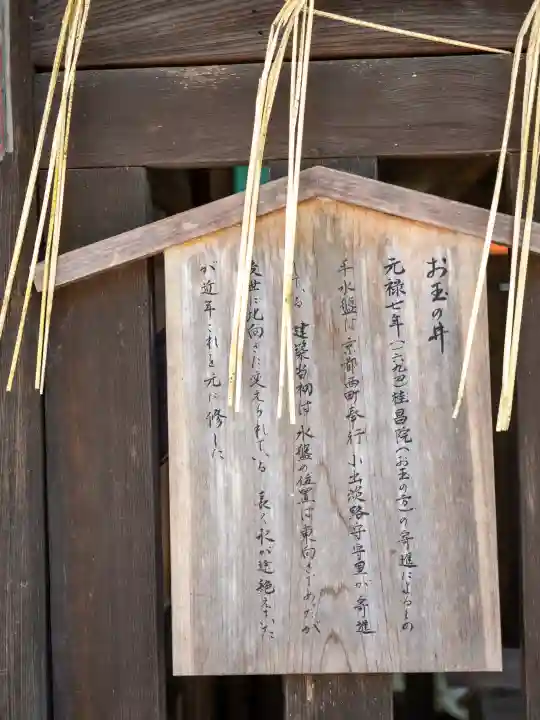 お玉の井
元禄七年(一六九四)桂昌院(お玉の方)の寄進によるもの
手水盤は京都西町奉行小出淡路守守里が寄進
いる 建築当初は水盤の位置は東向きであったが
後世に北向きに変えられている 長く水が途絶えていた
が近年これを元に修した